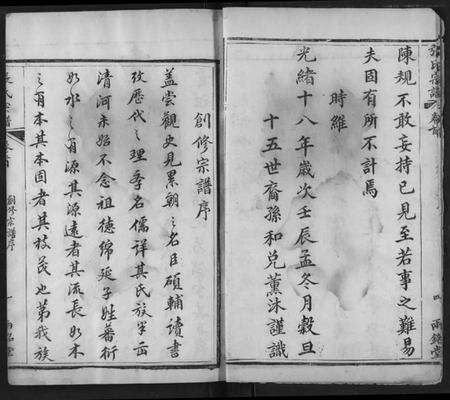 陳規不敢妄持己見至若事之難易
夫固有所不計焉
時維
光緒十八年歲次壬辰孟冬月穀旦
十五世裔孫和兑薰沐謹識
創修宗譜序
蓋嘗觀史見累朝之名臣碩輔讀書
攷歷代之理學名儒詳其氏族半出
清河未始不念祖德綿延子姓蕃衍
如水之有源其源遠者其流長如木
之有本其本固者其枝茂也第我族
創修宗譜序
一
四